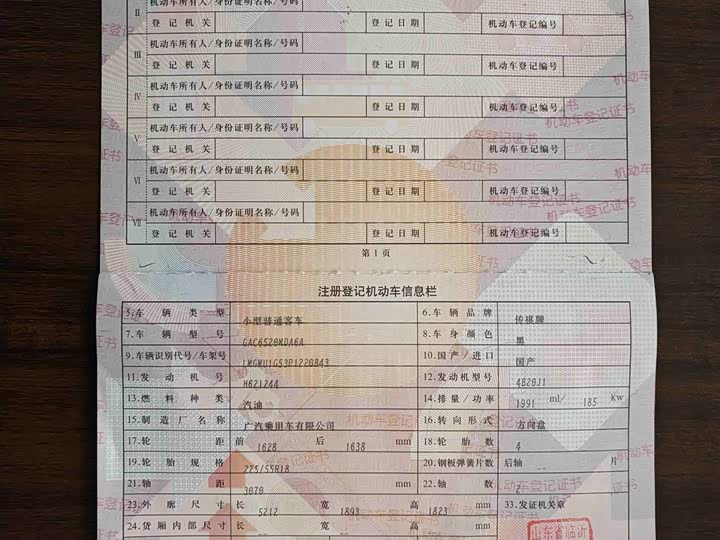 Ⅱ 机动车所有人/身份证明名称/号码
登记机关 登记日期 机动车登记编号
Ⅲ 机动车所有人/身份证明名称/号码
登记机关 登记日期 机动车登记编号
Ⅳ 机动车所有人/身份证明名称/号码
登记机关 登记日期 机动车登记编号
Ⅴ 机动车所有人/身份证明名称/号码
登记机关 登记日期 机动车登记编号
Ⅵ 机动车所有人/身份证明名称/号码
登记机关 登记日期 机动车登记编号
Ⅶ 机动车所有人/身份证明名称/号码
登记机关 登记日期 机动车登记编号
第1页
注册登记机动车信息栏
5.车辆类型 小型普通客车 6.车辆品牌 传祺牌
7.车辆型号 GAC6520MDA6A 8.车身颜色 黑
9.车辆识别代号/车架号 LMGMU1G53P1220843 10.国产/进口 国产
11.发动机号 H621244 12.发动机型号 4B20J1
13.燃料种类 汽油 14.排量/功率 1991 ml/ 185 kw
15.制造厂名称 广汽乘用车有限公司 16.转向形式 方向盘
17.轮距 前 1628 后 1638 mm 18.轮胎数 4
19.轮胎规格 225/55R18 20.钢板弹簧片数 后轴 -- 片
21.轴距 3070 mm 22.轴数 2
23.外廓尺寸 长 5212 宽 1893 高 1823 mm 33.发证机关章
24.货厢内部尺寸 长 -- 宽 -- 高 -- mm
山东省临沂